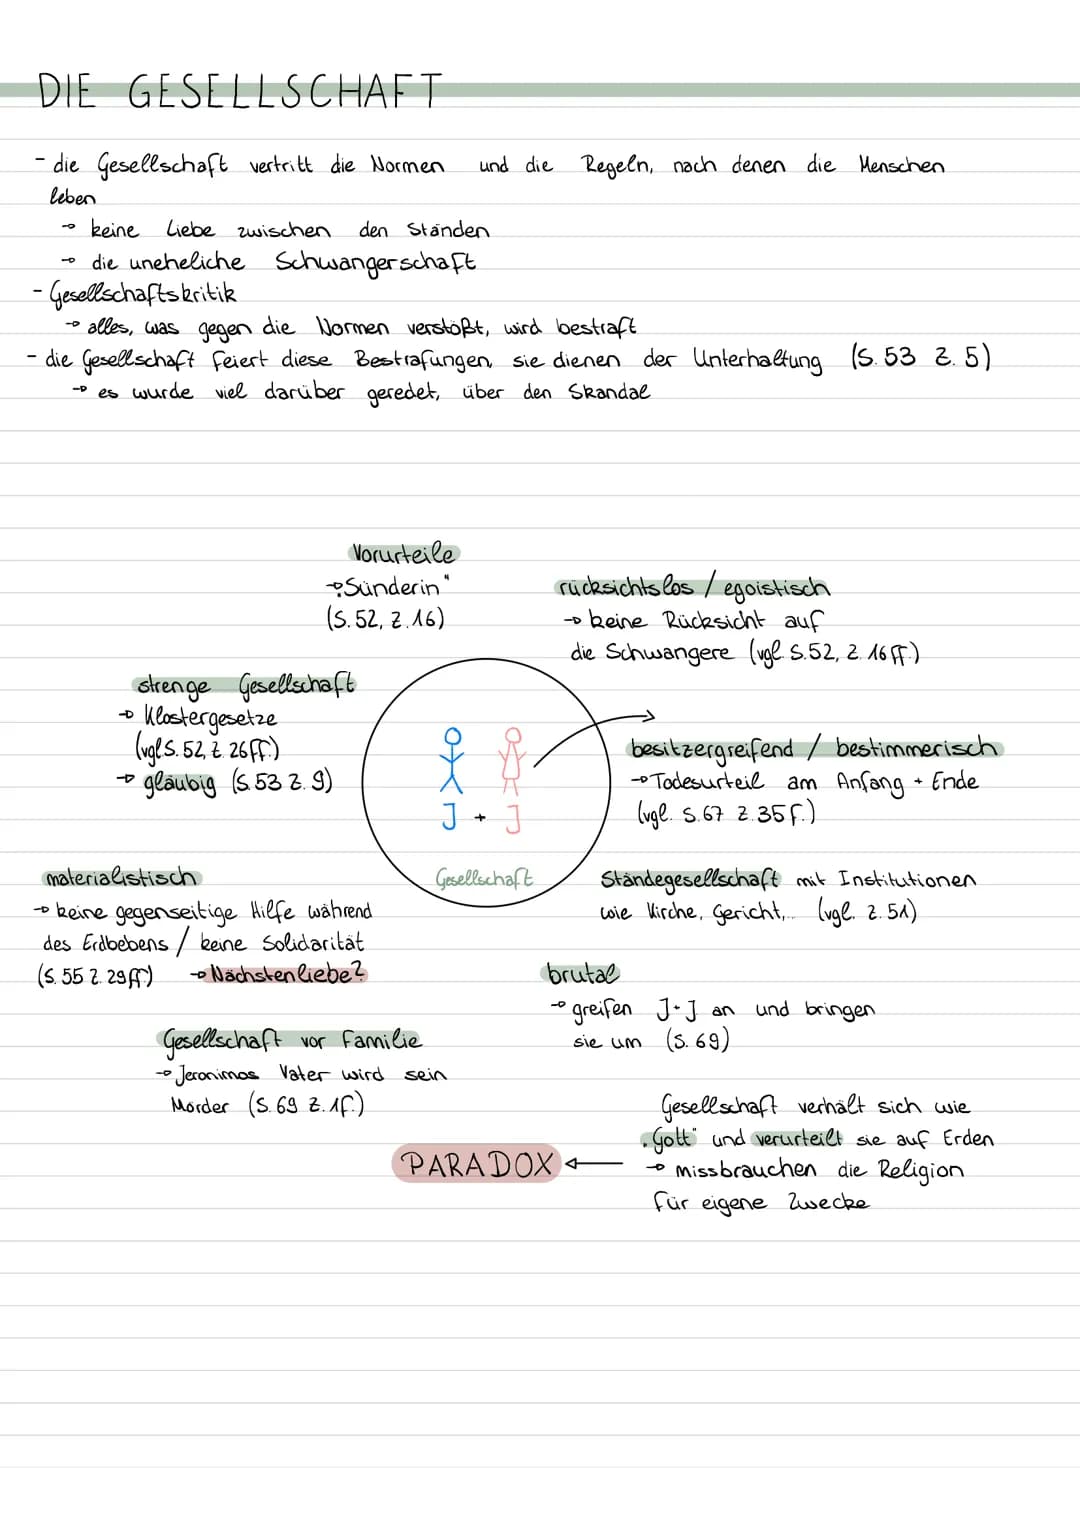 DIE GESELLSCHAFT
- die Gesellschaft vertritt die Normen und die Regeln, nach denen die Menschen
leben
→ keine Liebe zwischen den Ständen
→ die uneheliche Schwangerschaft
- Gesellschaftskritik
→ alles, was gegen die Normen verstößt, wird bestraft
- die Gesellschaft feiert diese Bestrafungen, sie dienen der Unterhaltung (S. 53 Z. 5)
→ es wurde viel darüber geredet, über den Skandal
Vorurteile
→ „Sünderin"
(S. 52, Z. 16)
rücksichtslos / egoistisch
→ keine Rücksicht auf
die Schwangere (vgl. S. 52, Z. 16 ff.)
strenge Gesellschaft
→ Klostergesetze
(vgl S. 52, Z. 26 ff.)
→ gläubig (S. 53 Z. 9)
besitzergreifend / bestimmerisch
→ Todesurteil am Anfang + Ende
(vgl. S. 67 Z. 35 f.)
J + J
Gesellschaft
materialistisch
→ keine gegenseitige Hilfe während
des Erdbebens / keine Solidarität
(S. 55 Z. 29 ff) → Nächstenliebe?
Ständegesellschaft mit Institutionen
wie Kirche, Gericht,.. (vgl. Z. 51)
brutal
→ greifen J+J an und bringen
sie um (S. 69)
Gesellschaft vor Familie
→ Jeronimos Vater wird sein
Mörder (S. 69 Z. 1f.)
Gesellschaft verhält sich wie
„Gott" und verurteilt sie auf Erden
→ missbrauchen die Religion
für eigene Zwecke
PARADOX ←